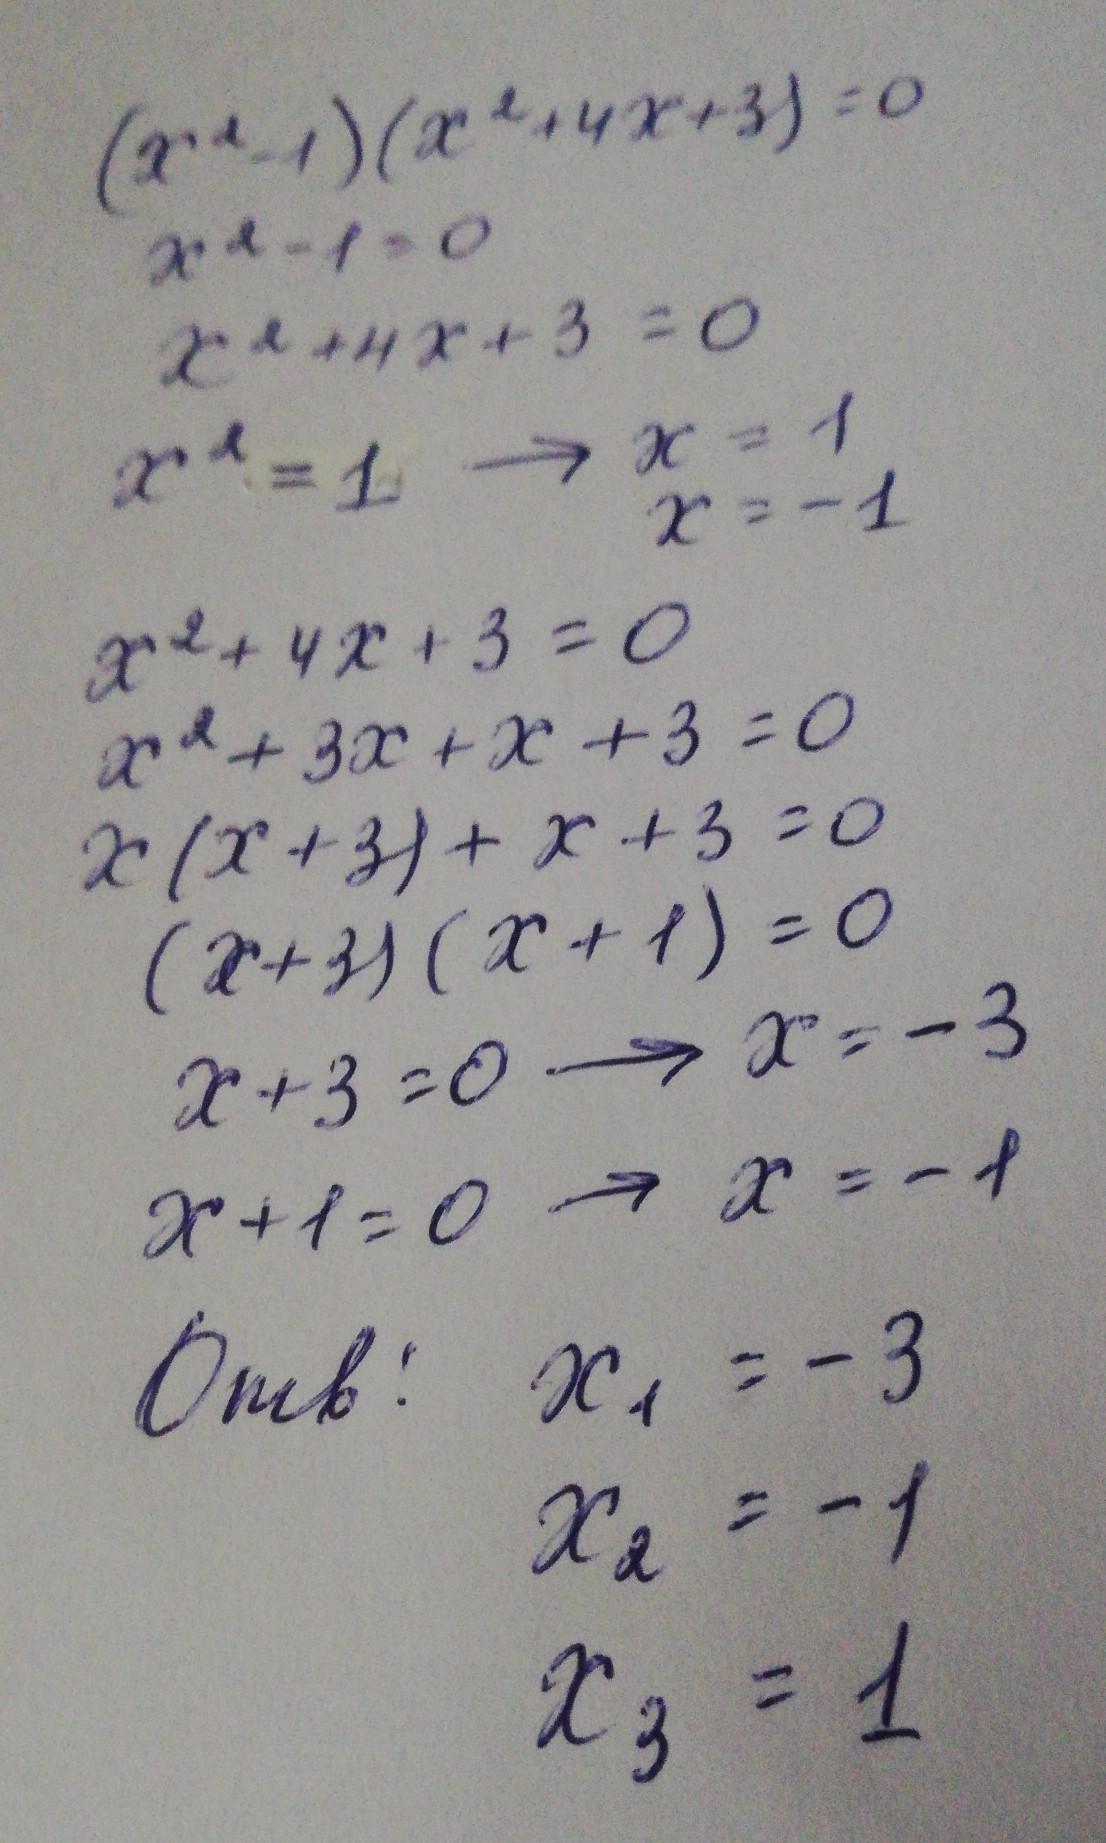 (x²-1)(x²+4x+3)=0
x²-1=0
x²+4x+3=0
x²=1 → x=1
x=-1
x²+4x+3=0
x²+3x+x+3=0
x(x+3)+x+3=0
(x+3)(x+1)=0
x+3=0 → x=-3
x+1=0 → x=-1
Отв: x₁=-3
x₂=-1
x₃=1